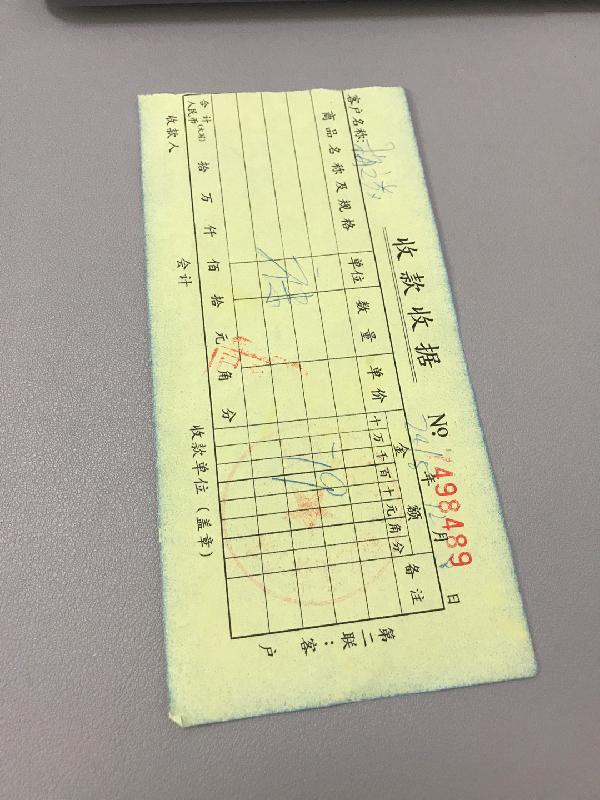 收款收据
№ 498489
年 月 日
客户名称:
商品名称及规格 单位 数量 单价 金额 备注
十万千百十元角分
合计
人民币(大写) 拾 万 仟 佰 拾 元 角 分
收款人 会计 收款单位(盖章)
第二联:客户